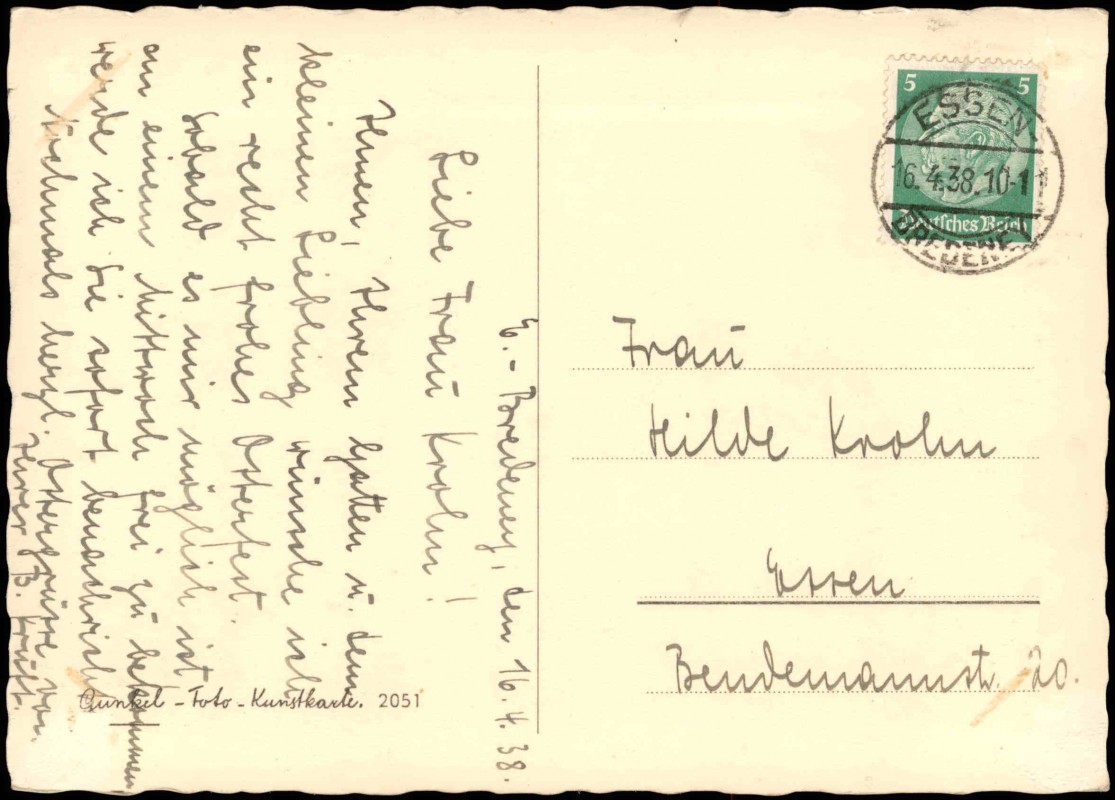 E.-Bredeney, den 16.4.38.
Liebe Frau Krohn!
Ihnen, Ihrem Gatten u. dem
kleinen Liebling wünsche ich
ein recht frohes Osterfest.
Sobald es mir möglich ist
am einen Mittwoch frei zu bekommen,
werde ich Sie sofort benachrich
Nochmals herzl. Ostergrüsse von
Ihrer B.
Gunkel - Foto - Kunstkarte. 2051
5 5
Deutsches Reich
ESSEN
16.4.38.10-11
BREDENEY
Frau
Hilde Krohn
Essen
Bendemannstr. 20.